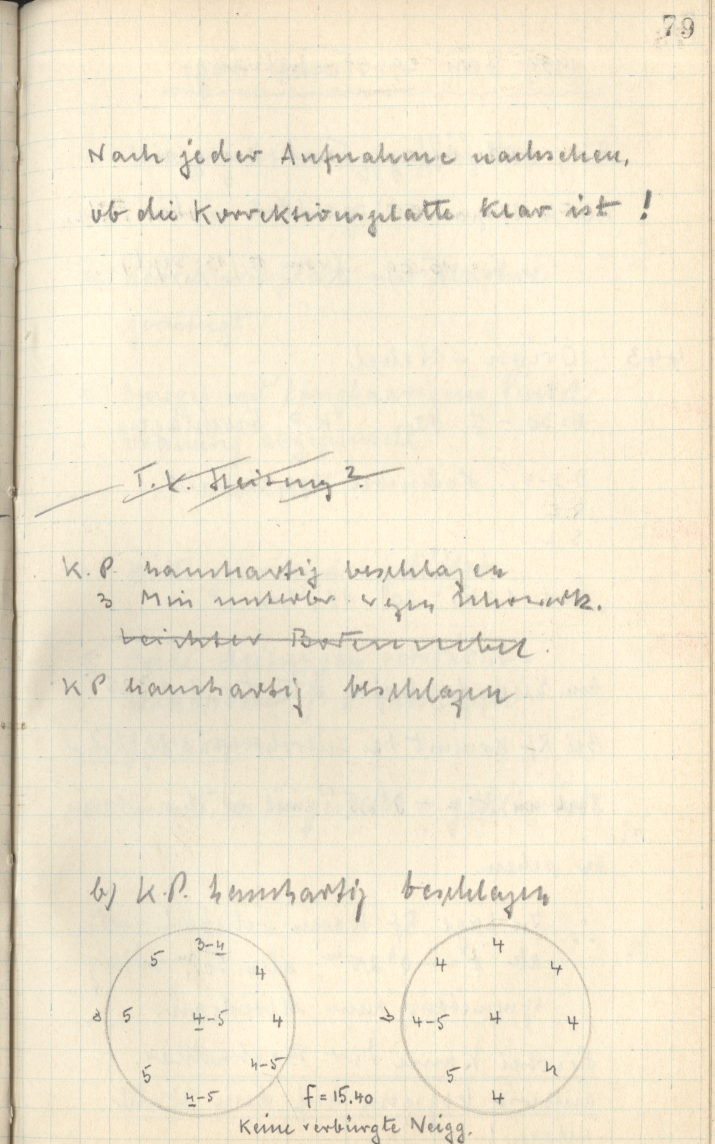 79
Nach jeder Aufnahme nachsehen,
ob die Korrektionsplatte klar ist !
K. P. hauchartig beschlagen
3 Min unterbr. wegen
Leichter Bodennebel.
KP hauchartig beschlagen
b) K.P. hauchartig beschlagen
3-4 4
5 4 4 4
5 4-5 4 4-5 4 4
5 4-5 5 4
4-5 4
f = 15.40
Keine verbürgte Neigg.